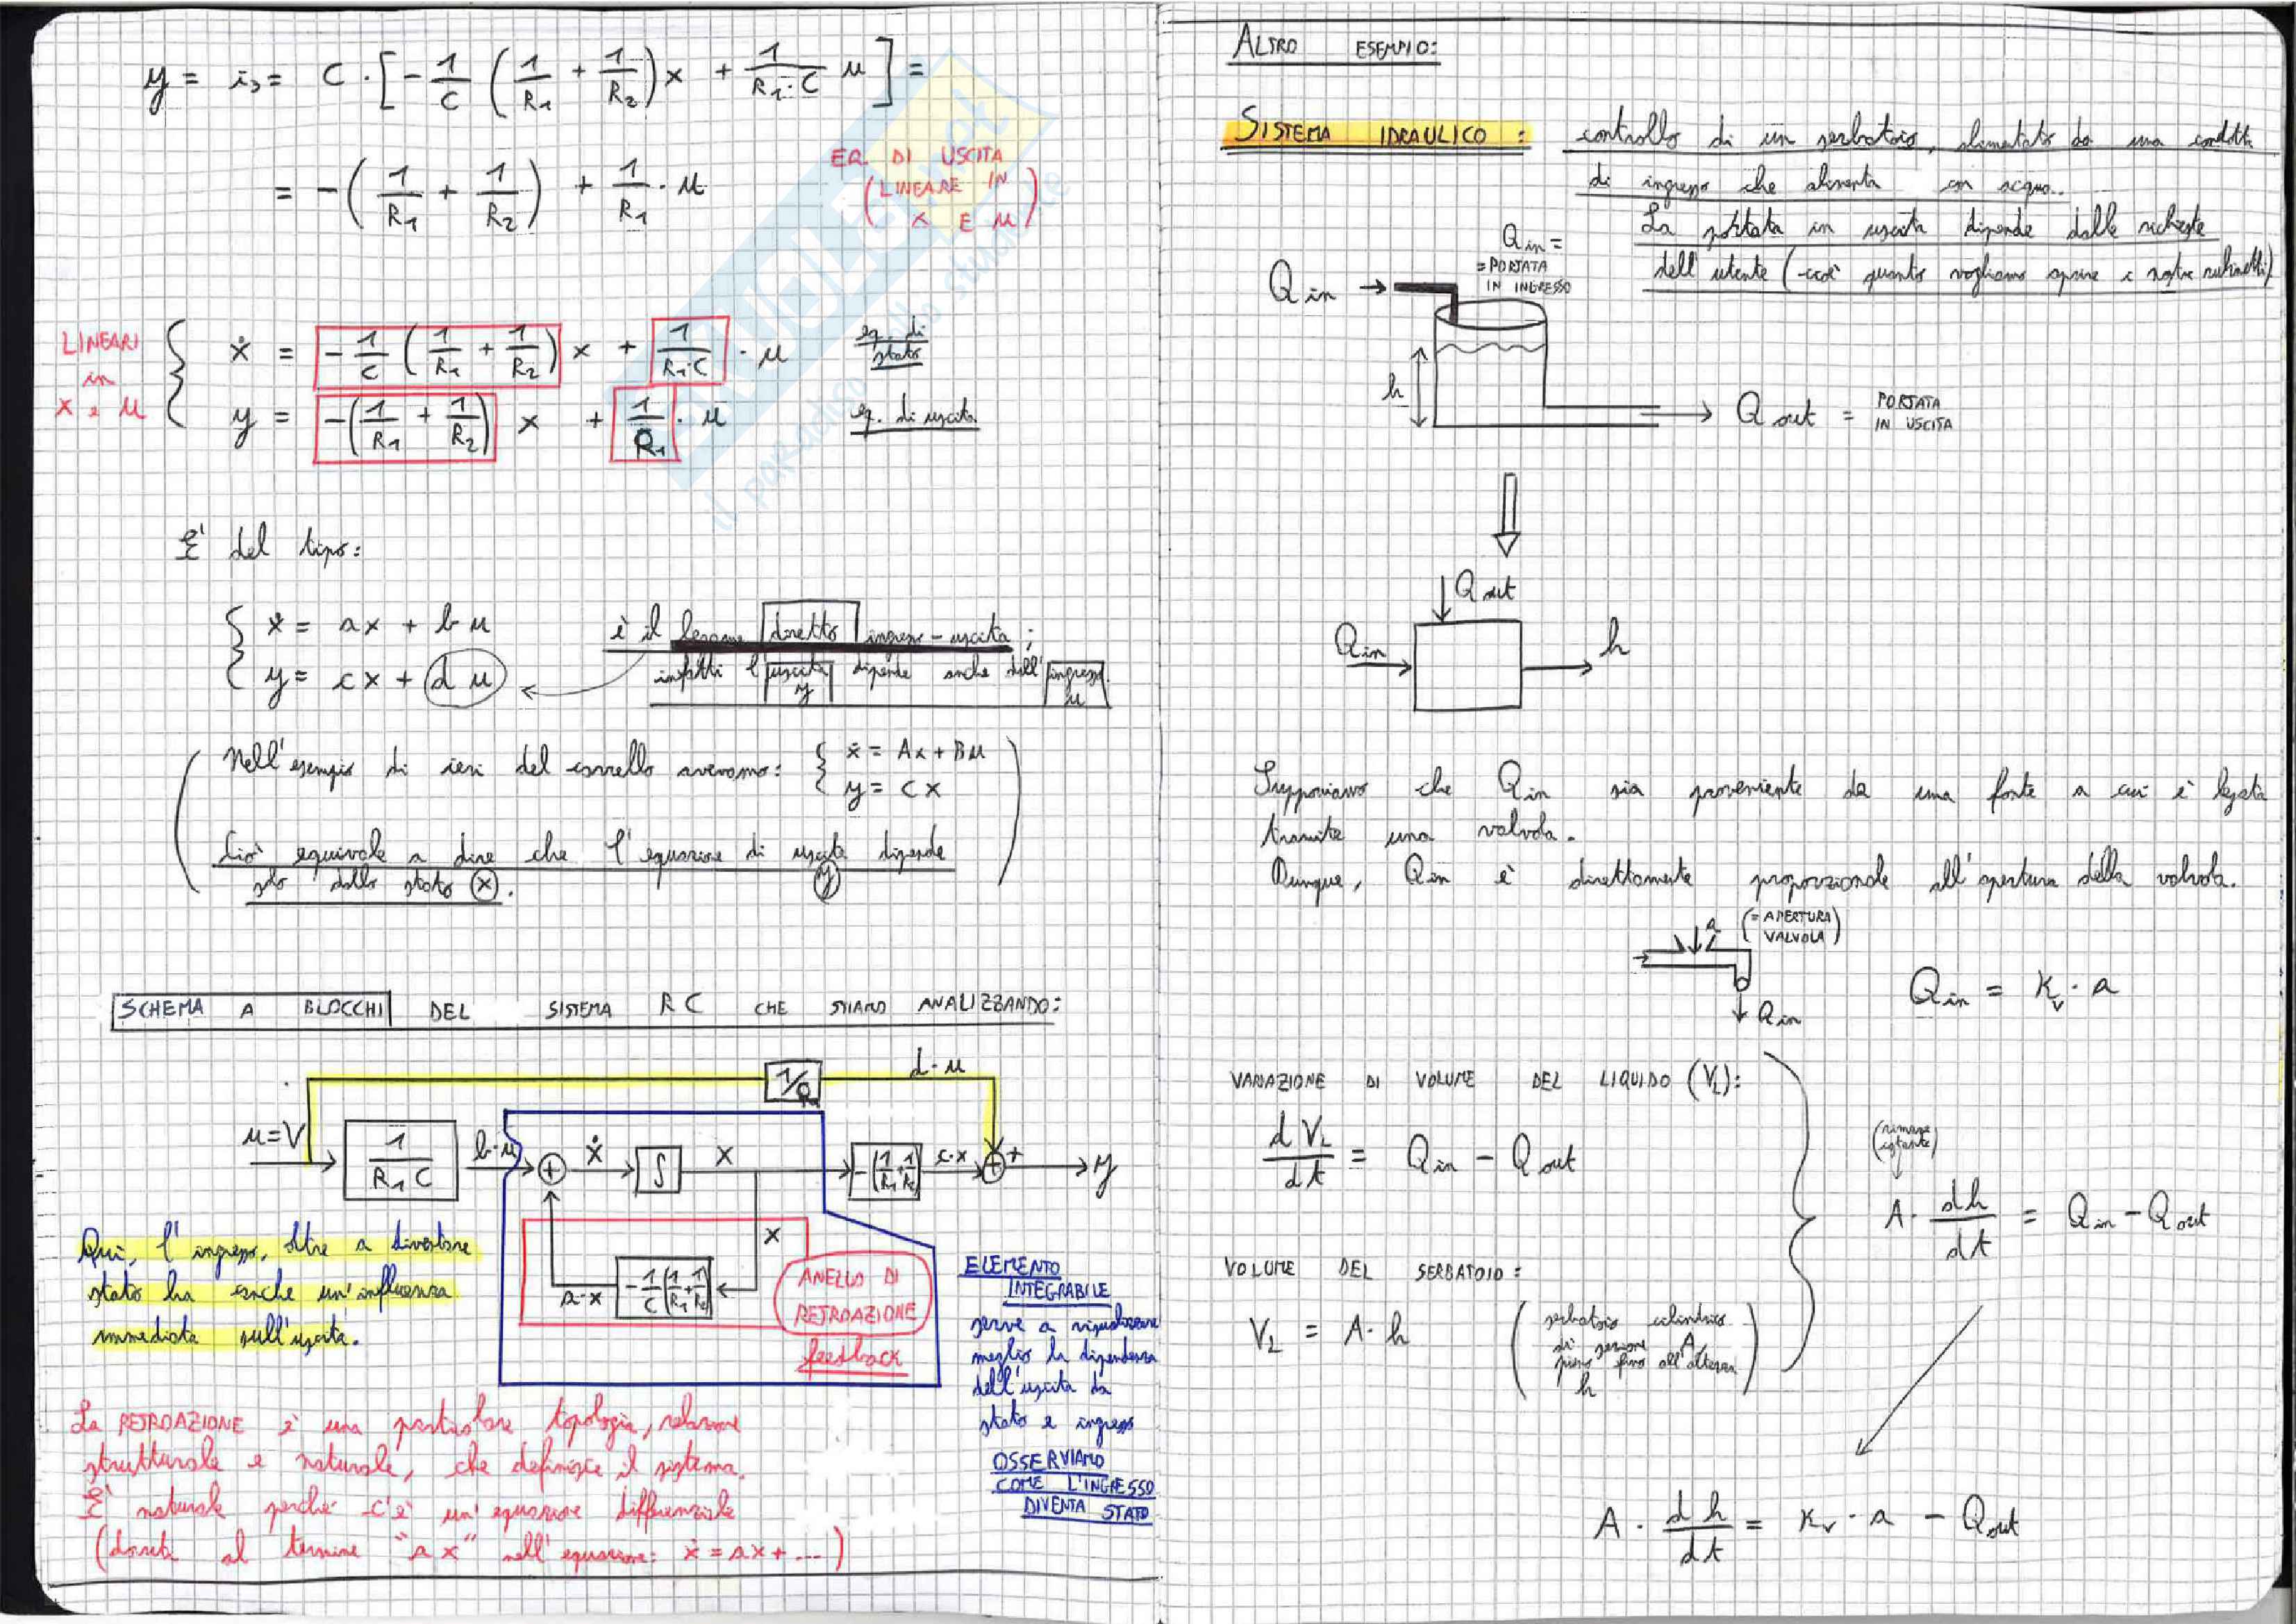 y = i₃ = C · [ - 1/C ( 1/R₁ + 1/R₂ ) x + 1/(R₁·C) u ] =
= - ( 1/R₁ + 1/R₂ ) + 1/R₁ · u
EQ. DI USCITA
( LINEARE IN
X E U )
LINEARI
in
x e u
ẋ = - 1/C ( 1/R₁ + 1/R₂ ) x + 1/(R₁·C) · u eq. di stato
y = - ( 1/R₁ + 1/R₂ ) x + 1/R₁ · u eq. di uscita
E' del tipo:
ẋ = ax + bu
y = cx + du
è il legame diretto ingresso-uscita ;
infatti l'uscita y dipende anche dall'ingresso u
( Nell'esempio di ieri del carrello avevamo: { ẋ = Ax + Bu
y = Cx
Ciò equivale a dire che l'equazione di uscita y dipende
solo dallo stato x . )
SCHEMA A BLOCCHI DEL SISTEMA RC CHE STIAMO ANALIZZANDO:
1/R₁ d·u
u=V 1/(R₁C) b·u + ẋ ∫ x -(1/R₁+1/R₂) c·x + + y
x
a·x -1/C(1/R₁+1/R₂)
ANELLO DI
RETROAZIONE
feedback
Qui, l'ingresso, oltre a diventare
stato ha anche un'influenza
immediata sull'uscita.
ELEMENTO
INTEGRABILE
serve a visualizzare
meglio la dipendenza
dell'uscita da
stato e ingresso
OSSERVIAMO
COME L'INGRESSO
DIVENTA STATO
La RETROAZIONE è una particolare topologia, relazione
strutturale e naturale, che definisce il sistema.
E' naturale perché c'è un'equazione differenziale
(dovuta al termine "ax" nell'equazione: ẋ = ax + ....)
ALTRO ESEMPIO:
SISTEMA IDRAULICO : controllo di un serbatoio, alimentato da una condotta
di ingresso che alimenta con acqua.
La portata in uscita dipende dalle richieste
dell'utente (cioè quanto vogliamo aprire i nostri rubinetti)
Qin =
= PORTATA
IN INGRESSO
Qin
h
Qout = PORTATA
IN USCITA
Qout
Qin h
Supponiamo che Qin sia proveniente da una fonte a cui è legata
tramite una valvola.
Dunque, Qin è direttamente proporzionale all'apertura della valvola.
a (= APERTURA
VALVOLA)
Qin
Qin = Kv · a
VARIAZIONE DI VOLUME DEL LIQUIDO (VL):
dVL/dt = Qin - Qout
(rimane
costante)
A · dh/dt = Qin - Qout
VOLUME DEL SERBATOIO:
VL = A · h
( serbatoio cilindrico
di sezione A,
pieno fino all'altezza
h )
A · dh/dt = Kv · a - Qout
il paradiso dello studente